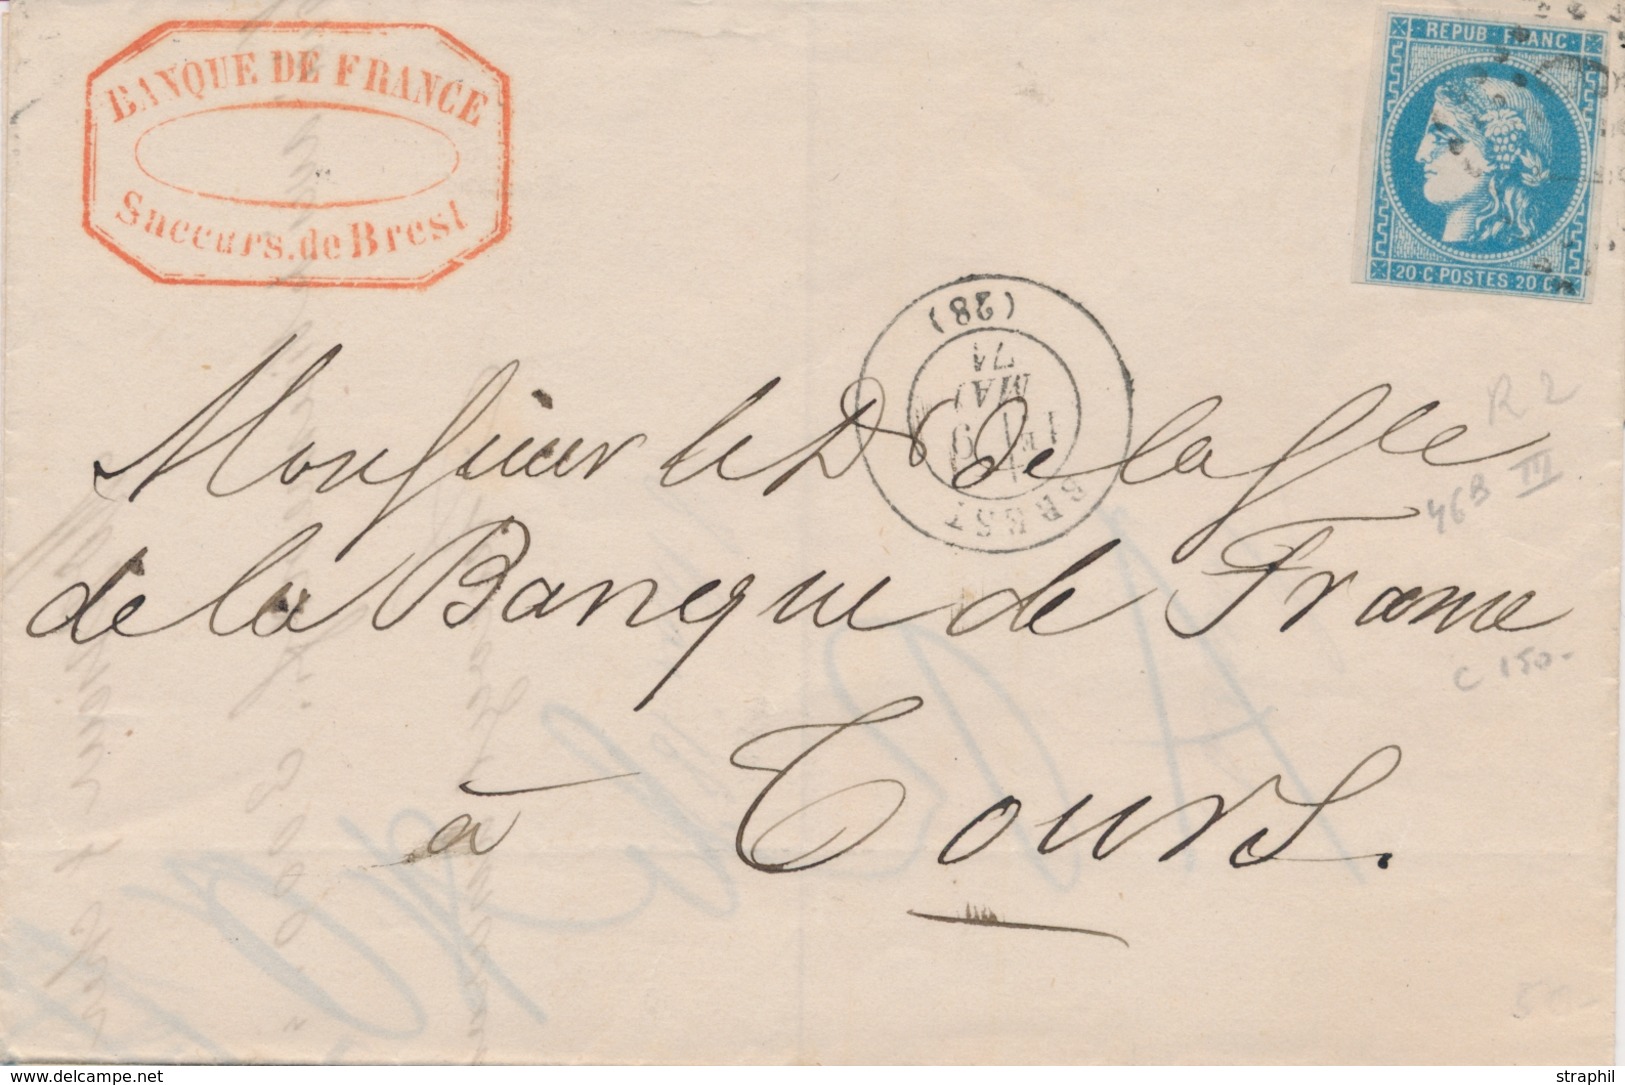 BANQUE DE FRANCE
Succurs. de Brest
REPUB. FRANC.
20·C·POSTES·20·C
(28)
71
MAI
19
BREST
Monsieur le Dr de la Sle
de la Banque de France
à Tours.
R 2
46B III
C 150-
50-
www.delcampe.net
straphil